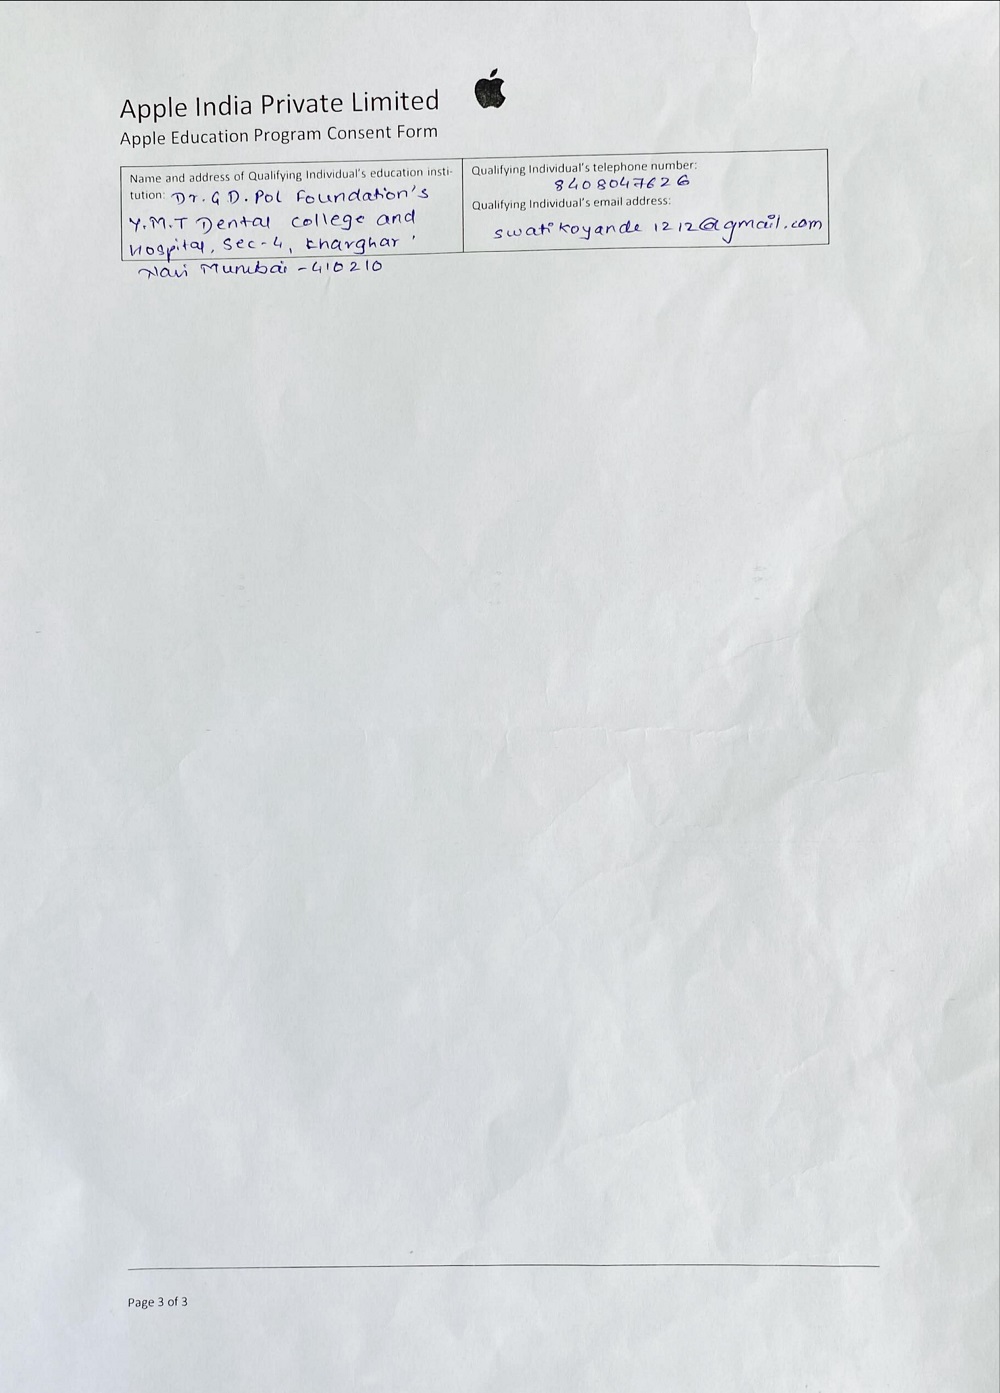 Apple India Private Limited
Apple Education Program Consent Form
Name and address of Qualifying Individual's education insti-
tution: Dr. G D. Pol Foundation's
Y.M.T Dental College and
Hospital, Sec-4, Kharghar,
Navi Mumbai - 410210
Qualifying Individual's telephone number:
8408047626
Qualifying Individual's email address:
swatikoyande1212@gmail.com
Page 3 of 3